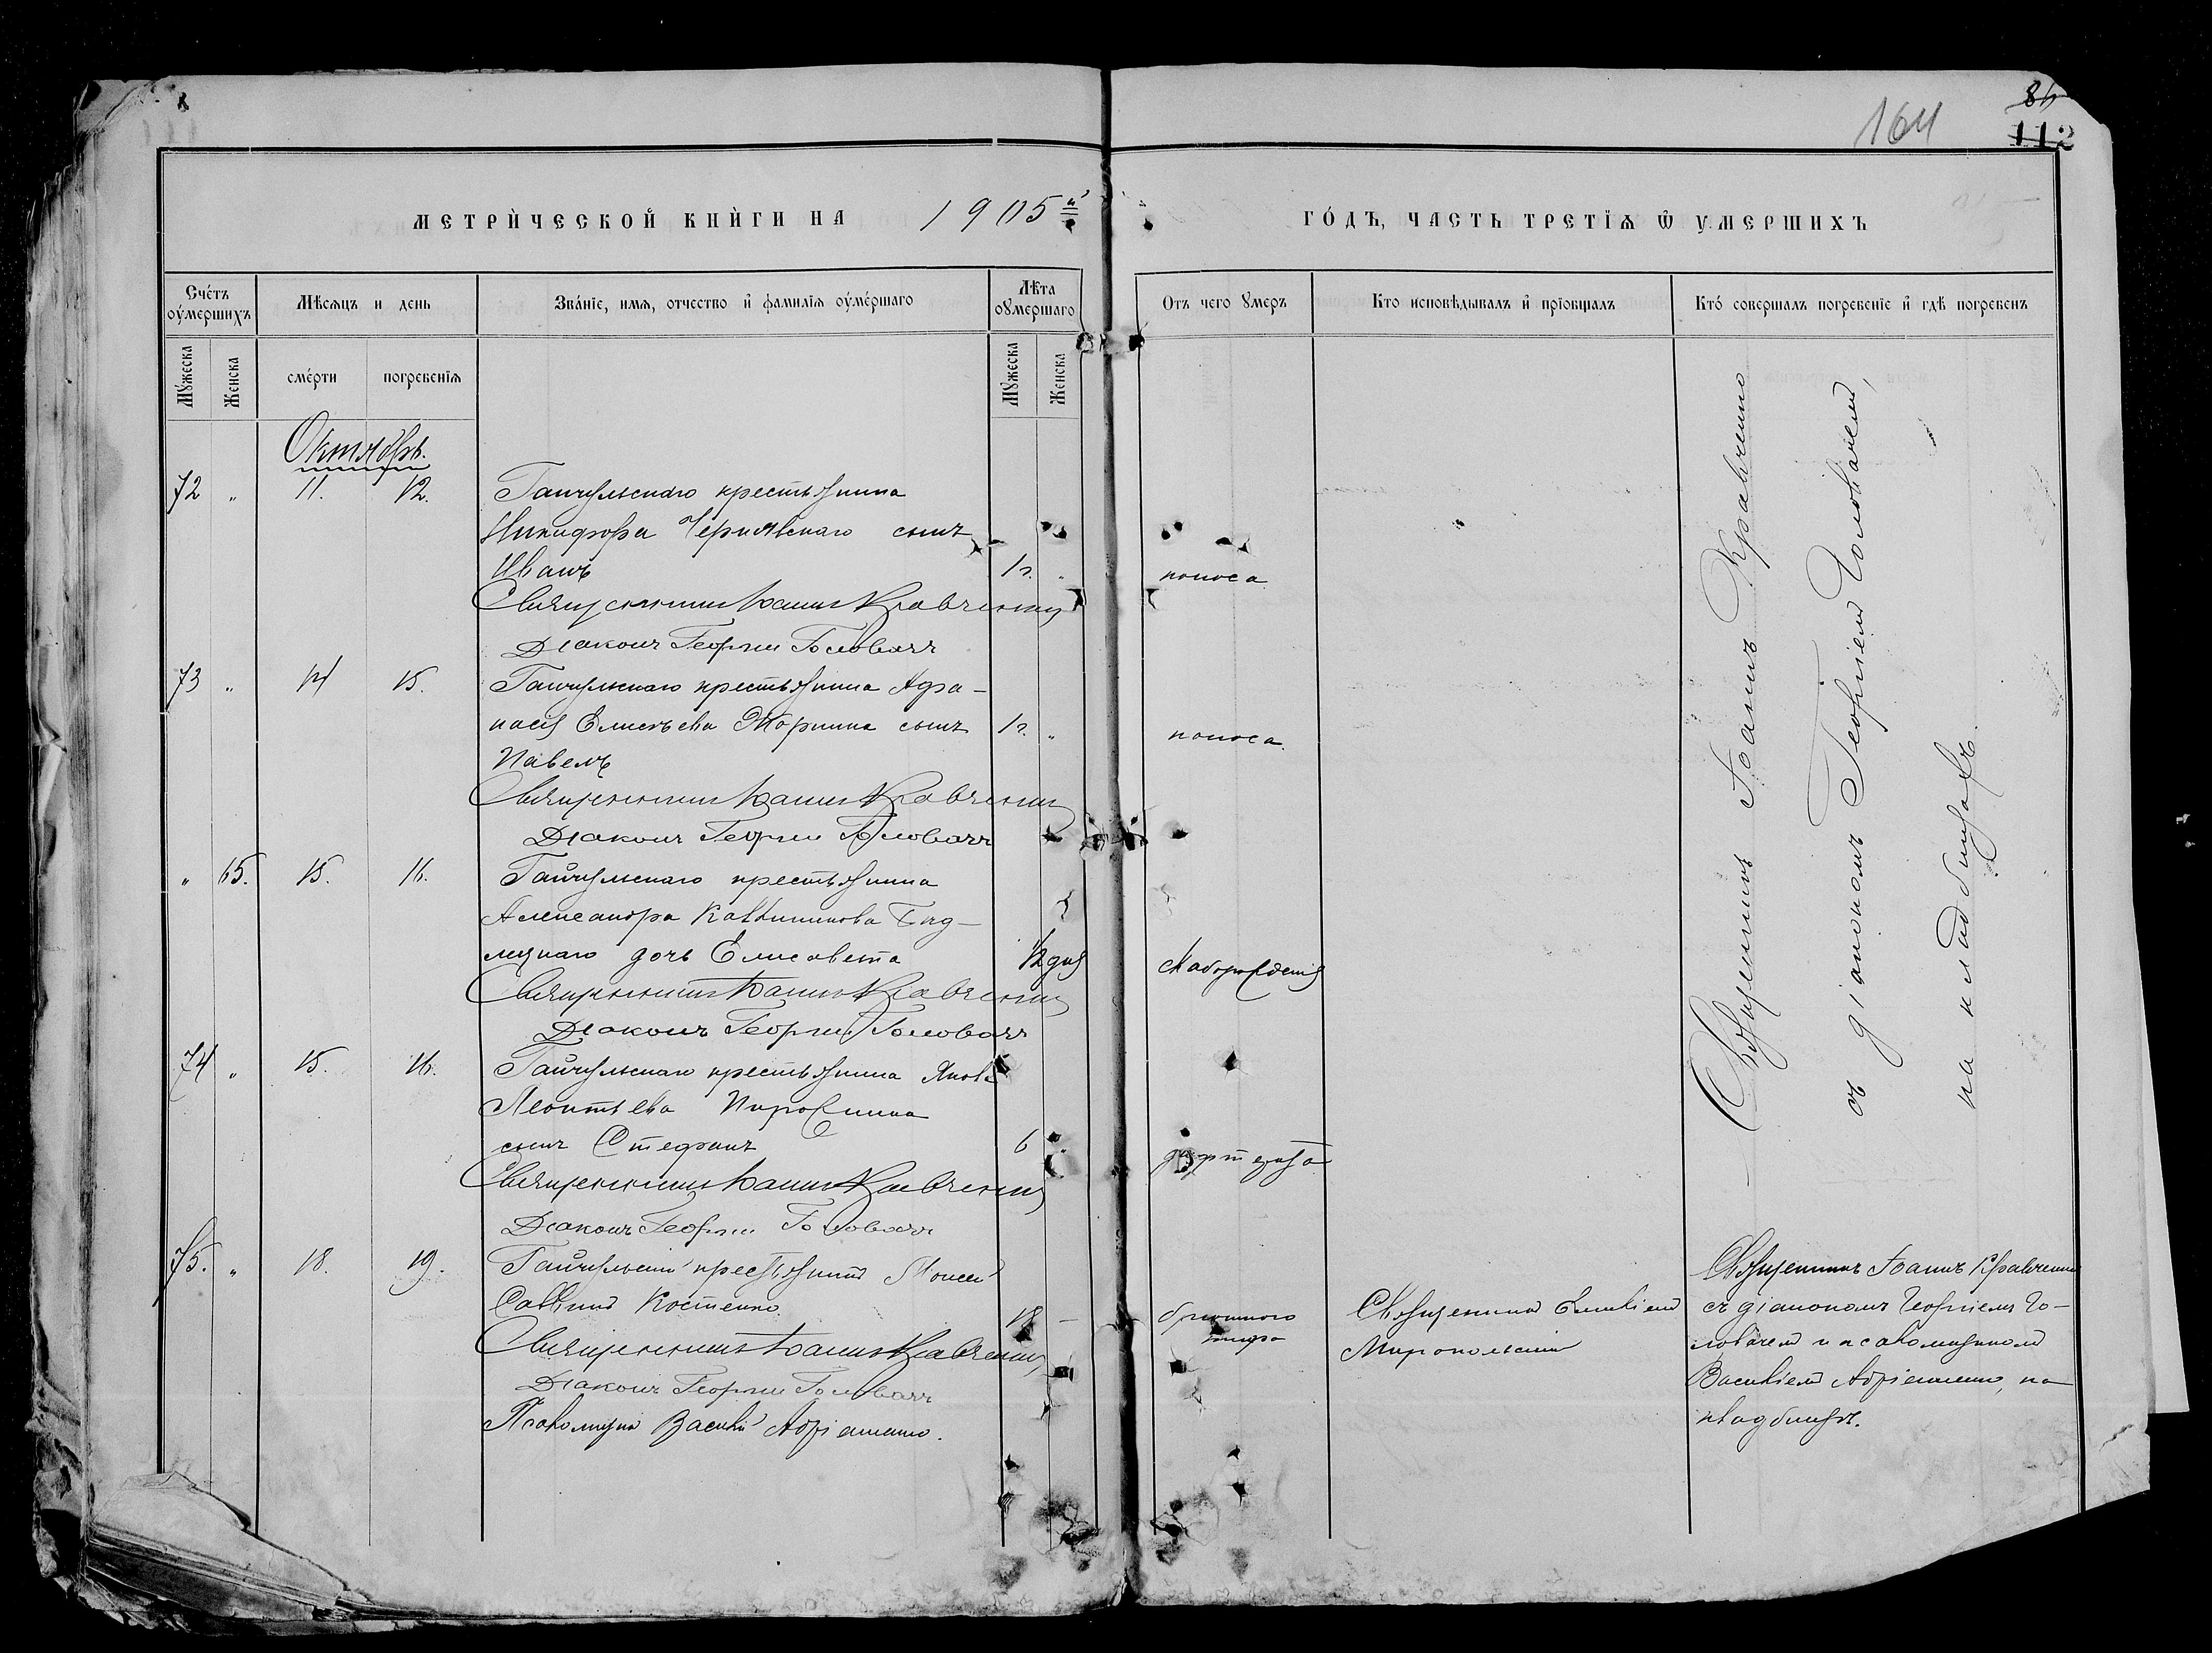 164
86
112
МЕТРИЧЕСКОЙ КНИГИ НА 1905й ГОДЪ, ЧАСТЬ ТРЕТІЯ Ѿ УМЕРШИХЪ
Счетъ оумершихъ
Мѣсяцъ и день
Званіе, имя, отчество и фамилія оумершаго
Лѣта оумершаго
Отъ чего умеръ
Кто исповѣдывалъ и пріобщалъ
Кто совершалъ погребеніе и гдѣ погребенъ
Мужеска
Женска
смерти
погребенія
Мужеска
Женска
Октябрь.
72 " 11. 12. Гайчульскаго крестьянина
Никифора Чернявскаго сынъ
Иванъ 1г. " поноса
Священникъ Іоаннъ Кравченко
Діаконъ Георгій Головачъ
73 " 14 15. Гайчульскаго крестьянина Афа-
насія Елисѣева сынъ 1г. " поноса.
Павелъ
Священникъ Іоаннъ Кравченко
Діаконъ Георгій Головачъ
" 65. 15. 16. Гайчульскаго крестьянина
Александра
дочь Елисавета 12 дня слаборожденія
Священникъ Іоаннъ Кравченко
Діаконъ Георгій Головачъ
74 " 15. 16. Гайчульскаго крестьянина Якова
Леонтьева
сынъ Стефанъ 6 "
Священникъ Іоаннъ Кравченко
Діаконъ Георгій Головачъ
Священникъ Іоаннъ Кравченко
съ діакономъ Георгіемъ Головачемъ,
на кладбищѣ.
75. " 18. 19. Гайчульскій крестьянинъ Моисей
Саввинъ Костенко. 18 – брюшного тифа
Священникъ Іоаннъ Кравченко
Діаконъ Георгій Головачъ
Псаломщикъ Василій Адріаненко.
Священникъ
Миропольскій
Священникъ Іоаннъ Кравченко
съ діакономъ Георгіемъ Го-
ловачемъ и псаломщикомъ
Василіемъ Адріаненко, на
кладбищѣ.